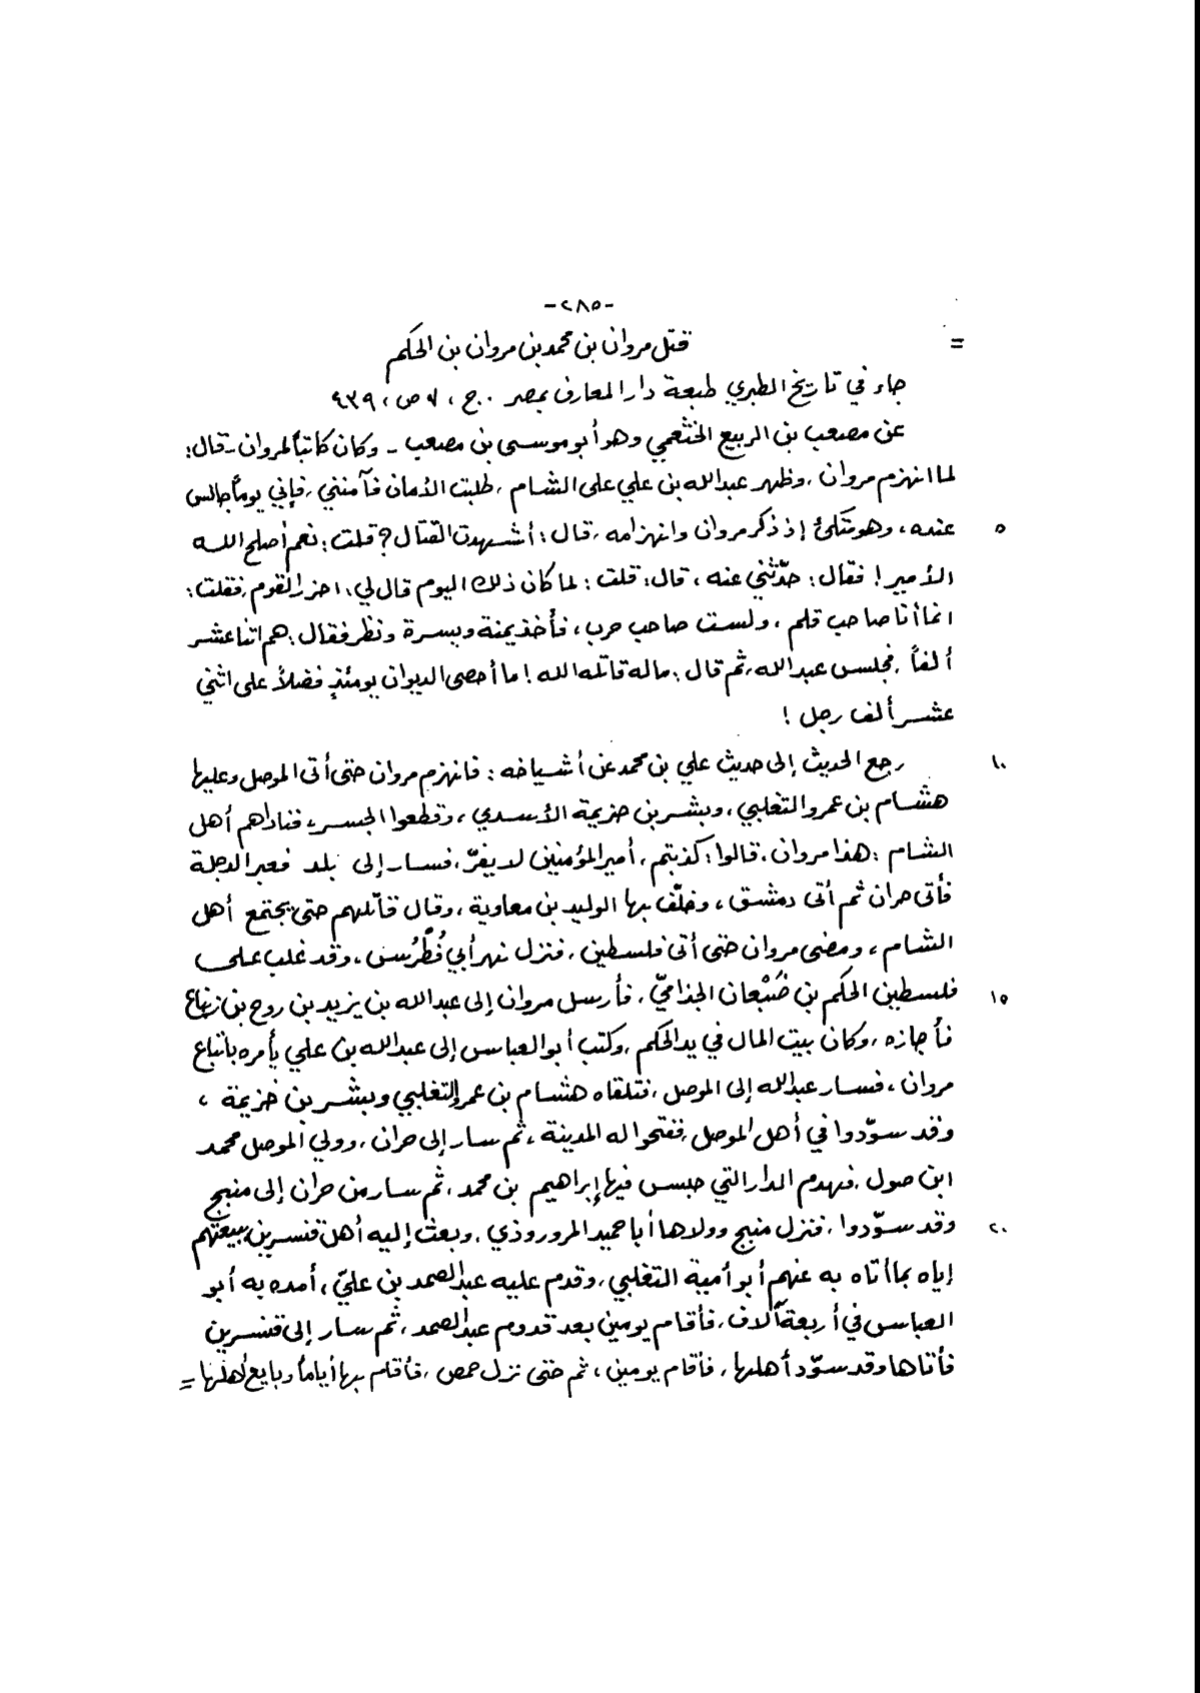 -٢٨٥-
= قتل مروان بن محمد بن مروان بن الحكم
جاء في تاريخ الطبري طبعة دار المعارف بمصر .ج ، ٧ ص ، ٤٣٩
عن مصعب بن الربيع الخثعمي وهو أبو موسى بن مصعب - وكان كاتباً لمروان - قال :
لما انهزم مروان ، وظهر عبدالله بن علي على الشام ، طلبت الأمان فآمنني ، فإني يوماً جالس
٥ عنده ، وهو متكئ إذ ذكر مروان وانهزامه ، قال : أشهدت القتال ؟ قلت : نعم أصلح الله
الأمير ! فقال : حدّثني عنه ، قال : قلت : لما كان ذلك اليوم قال لي : احزر القوم ، فقلت :
انما أنا صاحب قلم ، ولست صاحب حرب ، فأخذ يمنة ويسرة ونظر فقال : هم اثنا عشر
ألفاً ، فجلس عبدالله ، ثم قال : ماله قاتله الله ! ما أحصى الديوان يومئذٍ فضلاً على اثني
عشر ألف رجل !
١٠ رجع الحديث إلى حديث علي بن محمد عن أشياخه : فانهزم مروان حتى أتى الموصل وعليها
هشام بن عمرو التغلبي ، وبشر بن خزيمة الأسدي ، وقطعوا الجسر ، فناداهم أهل
الشام : هذا مروان ، قالوا : كذبتم ، أمير المؤمنين لا يفرّ ، فسار إلى بلد فعبر الدجلة
فأتى حران ثم أتى دمشق ، وخلّف بها الوليد بن معاوية ، وقال قاتلهم حتى يجتمع أهل
الشام ، ومضى مروان حتى أتى فلسطين ، فنزل نهر أبي فُطْرُس ، وقد غلب على
١٥ فلسطين الحكم بن ضَبْعان الجذاميّ ، فأرسل مروان إلى عبدالله بن يزيد بن روح بن زنباع
فأجازه ، وكان بيت المال في يد الحكم ، وكتب أبو العباس إلى عبدالله بن علي يأمره باتباع
مروان ، فسار عبدالله إلى الموصل ، فتلقاه هشام بن عمرو التغلبي وبشر بن خزيمة ،
وقد سوّدوا في أهل الموصل ، ففتحوا له المدينة ، ثم سار إلى حران ، وولي الموصل محمد
ابن صول ، فهدم الدار التي حبس فيها إبراهيم بن محمد ، ثم سار من حران إلى منبج
٢٠ وقد سوّدوا ، فنزل منبج وولاها أبا حميد المروروذي ، وبعث إليه أهل قنسرين ببيعتهم
إياه بما أتاه به عنهم أبو أمية التغلبي ، وقدم عليه عبدالصمد بن عليّ ، أمده به أبو
العباس في أربعة آلاف ، فأقام يومين بعد قدوم عبدالصمد ، ثم سار إلى قنسرين
فأتاها وقد سوّد أهلها ، فأقام يومين ، ثم حتى نزل حمص ، فأقام بها أياماً وبايع أهلها =